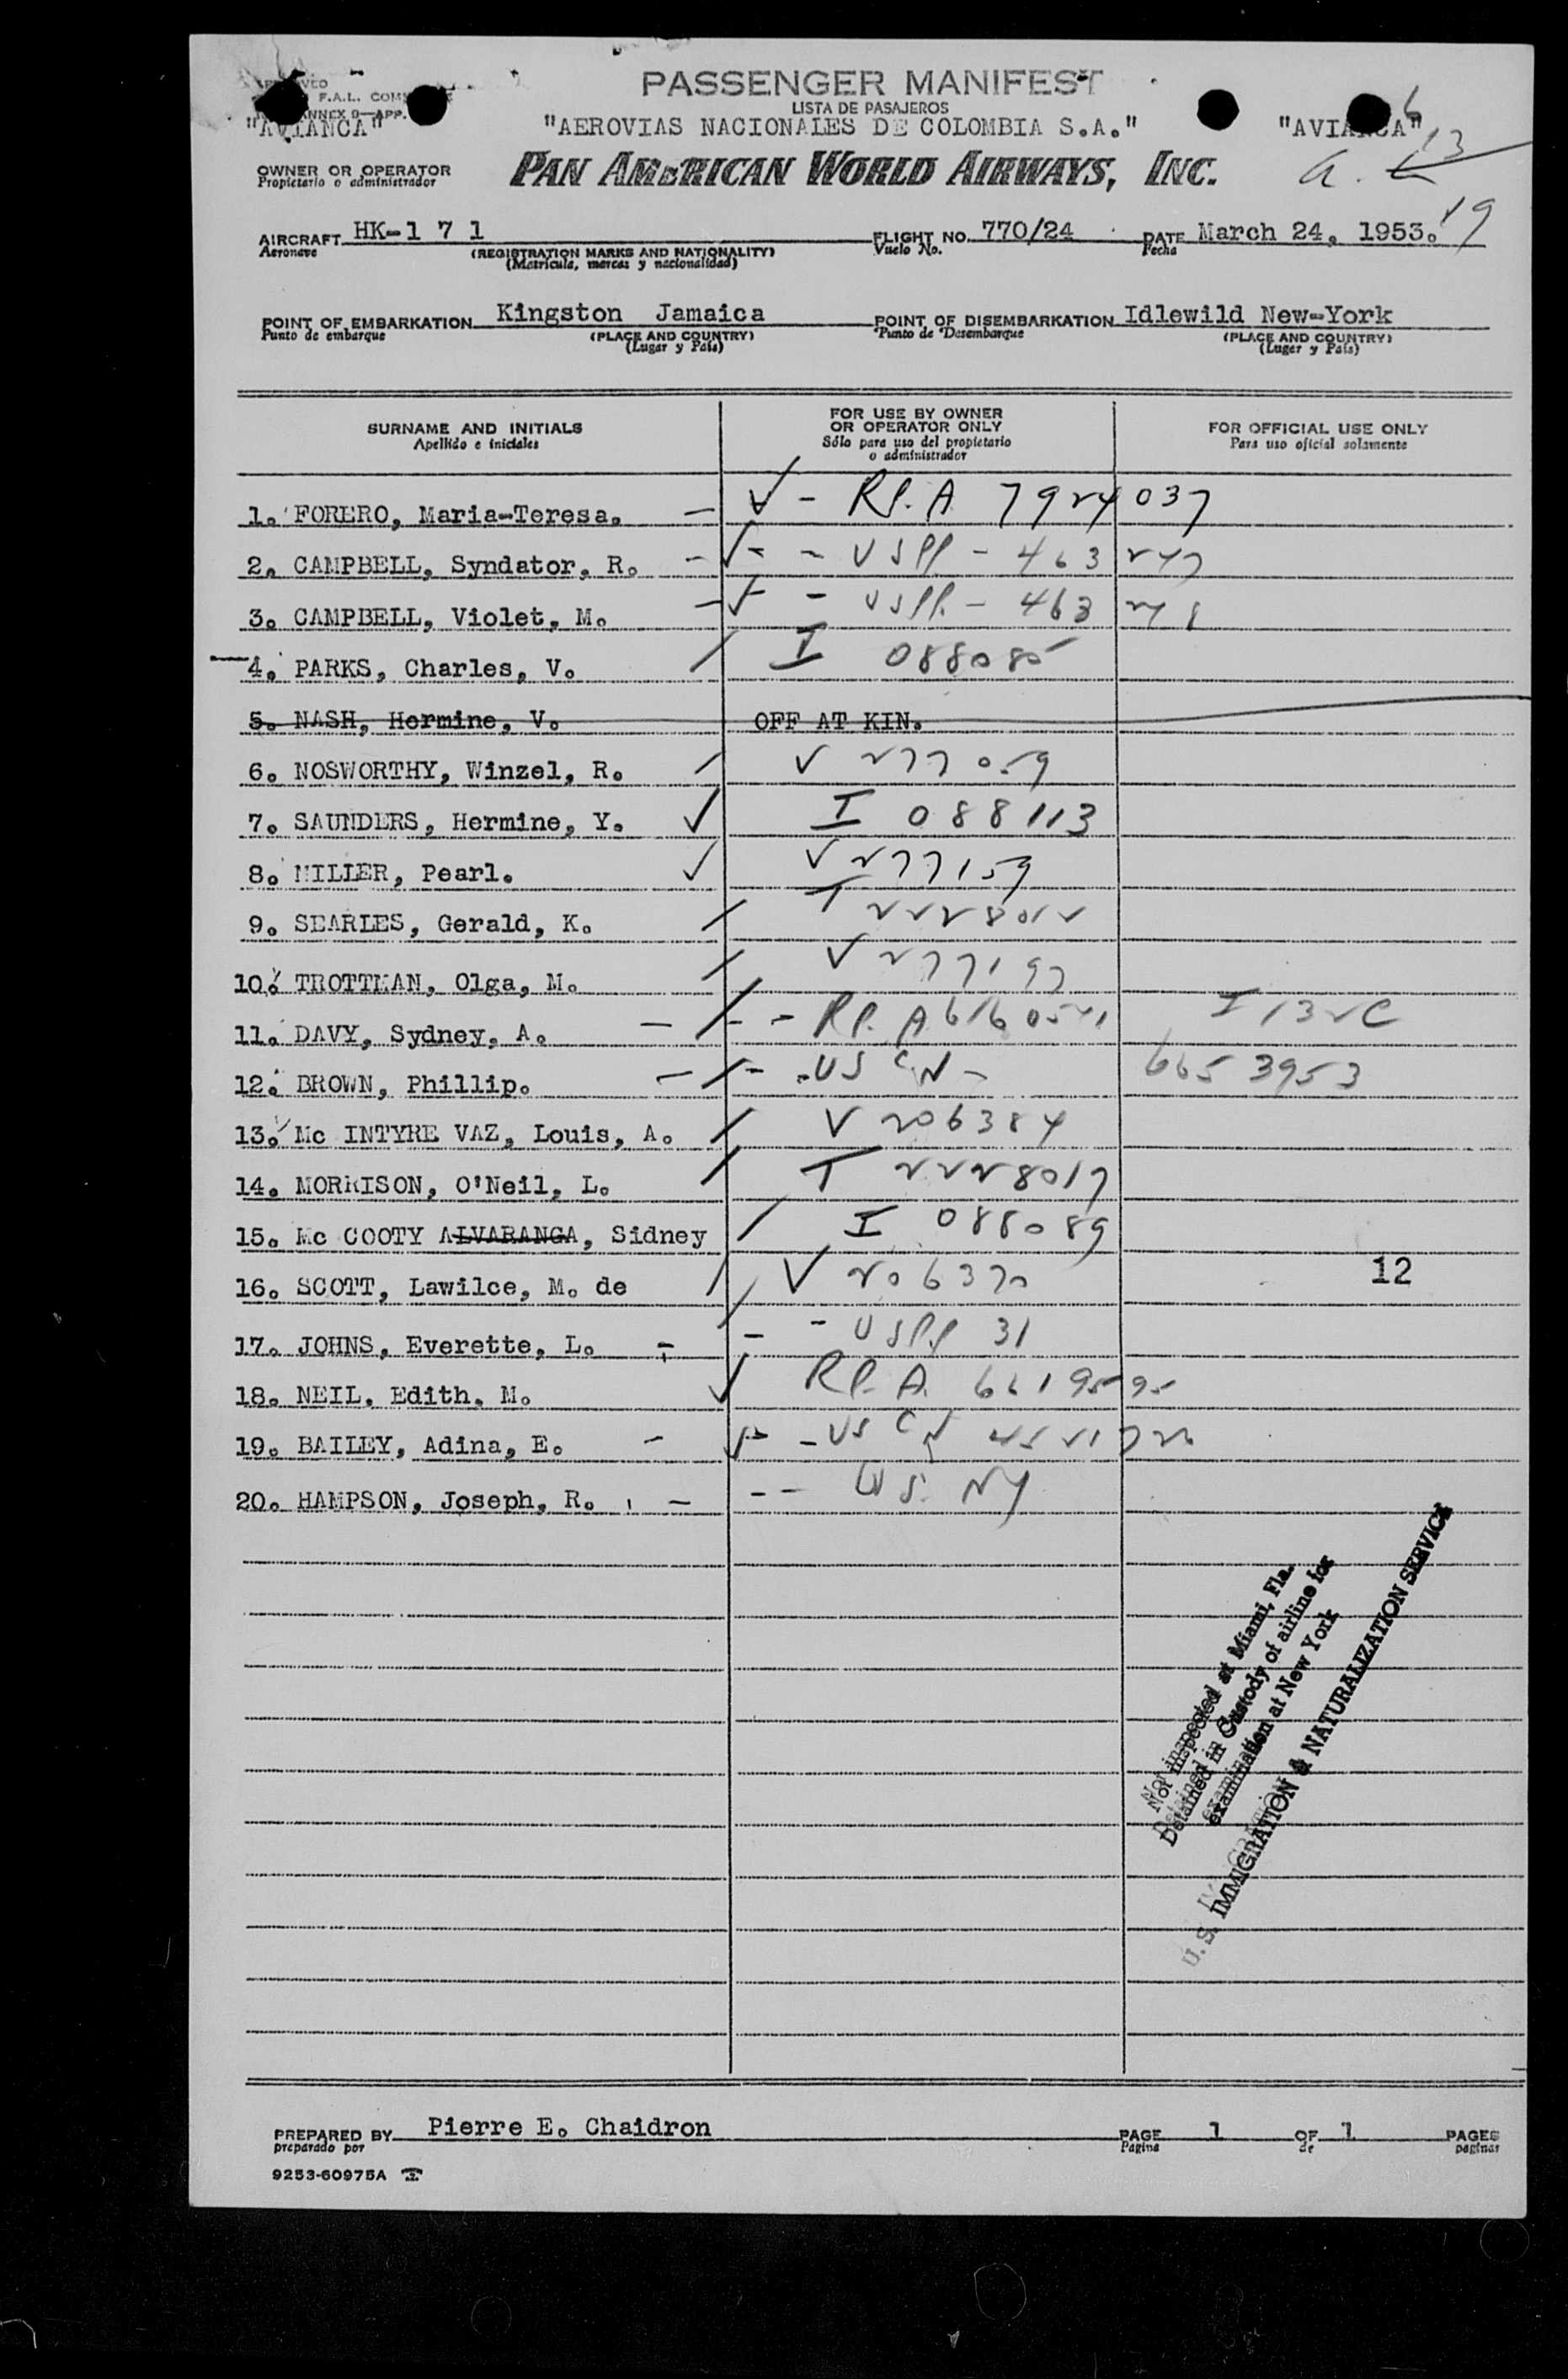 PASSENGER MANIFEST
F.A.L.
ANNEX 9—APP.
LISTA DE PASAJEROS
"AVIANCA" "AEROVIAS NACIONALES DE COLOMBIA S.A." "AVIANCA" 6
13
OWNER OR OPERATOR
Propietario o administrador
PAN AMERICAN WORLD AIRWAYS, INC.
19
AIRCRAFT HK-1 7 1 FLIGHT NO. 770/24 DATE March 24, 1953.
Aeronave (REGISTRATION MARKS AND NATIONALITY) Vuelo No. Fecha
(Matrícula, marcas y nacionalidad)
POINT OF EMBARKATION Kingston Jamaica POINT OF DISEMBARKATION Idlewild New-York
Punto de embarque (PLACE AND COUNTRY) Punto de Desembarque (PLACE AND COUNTRY)
(Lugar y País) (Lugar y País)
SURNAME AND INITIALS FOR USE BY OWNER OR OPERATOR ONLY FOR OFFICIAL USE ONLY
Apellido e iniciales Sólo para uso del propietario o administrador Para uso oficial solamente
1. FORERO, Maria-Teresa. — ✓ - RP. A 7924037
2. CAMPBELL, Syndator, R. - - - USPP - 463247
3. CAMPBELL, Violet, M. - - USPP. - 463248
4. PARKS, Charles, V. / I 088085
5. NASH, Hermine, V. OFF AT KIN.
6. NOSWORTHY, Winzel, R. / V 277059
7. SAUNDERS, Hermine, Y. ✓ I 088113
8. MILLER, Pearl. ✓ V 277159
9. SEARLES, Gerald, K. / T 2228012
10. TROTTMAN, Olga, M. / V 277197
11. DAVY, Sydney, A. — / - - RP. A 6160541 I 132C
12. BROWN, Phillip. — / - - US CN - 6653953
13. Mc INTYRE VAZ, Louis, A. / V 206384
14. MORRISON, O'Neil, L. / T 2228017
15. Mc COOTY ALVARANGA, Sidney / I 088089
16. SCOTT, Lawilce, M. de / V 206370
12
17. JOHNS, Everette, L. - / - - USPP 31
18. NEIL, Edith, M. ✓ RP. A. 6619595
19. BAILEY, Adina, E. - - - US CN
20. HAMPSON, Joseph, R. — - - US. NY
Not inspected at Miami, Fla.
Detained in Custody of airline for
examination at New York
U. S. IMMIGRATION & NATURALIZATION SERVICE
PREPARED BY Pierre E. Chaidron PAGE 1 OF 1 PAGES
preparado por Página de paginas
9253-60975A